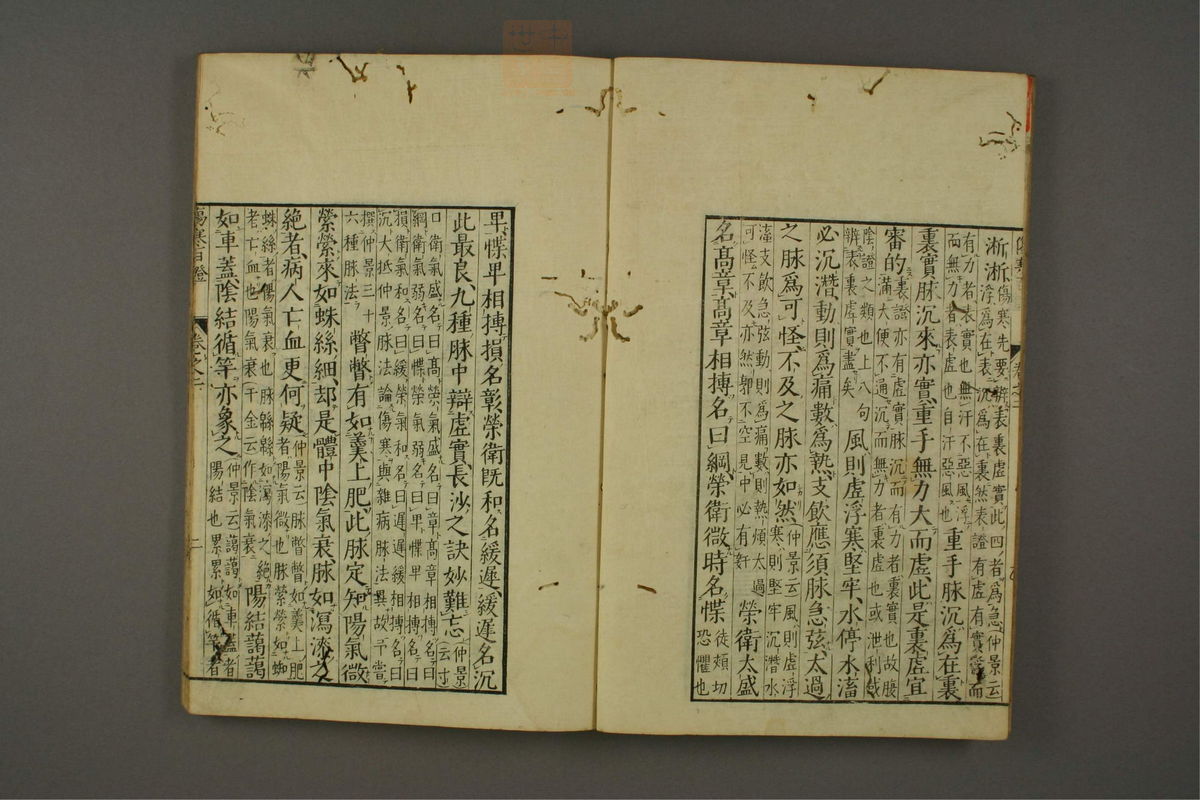 淅淅傷寒先要辨表裏虛實此四者爲急仲景云
浮爲在表沉爲在裏然表證有虛有實
有力者表實也無汗不惡風浮
而無力者表虛也自汗惡風也重手脉沉爲在裏
裏實脉沉來亦實重手無力大而虛此是裏虛宜
審的裏證亦有虛實脉沉而有力者裏實也故腹
滿大便不通沉而無力者裏虛也或泄利或
陰證之類也上八句
辨表裏虛實盡矣風則虛浮寒堅牢水停水畜
必沉潛動則爲痛數爲熱支飲應須脉急弦太過
之脉爲可怪不及之脉亦如然仲景云風則虛浮
寒則堅牢沉潛水
滀支飲急弦動則爲痛數則熱煩太過
可怪不及亦然邪不空見中必有奸榮衛太盛
名髙章髙章相摶名曰綱榮衛微時名惵徒頰切
恐懼也
卑惵卑相摶損名彰榮衛旣和名緩遲緩遲名沉
此最良九種脉中辯虛實長沙之訣妙難忘仲景
云寸
口衛氣盛名曰髙榮氣盛名曰章髙章相摶名曰
綱衛氣弱名曰惵榮氣弱名曰卑惵卑相摶名曰
損衛氣和名曰緩榮氣和名曰遲遲緩相摶名曰
沉大抵仲景脉法論傷寒與雜病脉法異故予嘗
撰仲景三十
六種脉法瞥瞥有如羹上肥此脉定知陽氣微
縈縈來如蛛絲細却是體中陰氣衰脉如瀉漆之
絕者病人亡血更何疑仲景云脉瞥瞥如羹上肥
者陽氣微也脉縈縈如蜘
蛛絲者陽氣衰也脉綿綿如瀉漆之絕
者亡血也陽氣衰千金云作陰氣衰陽結藹藹
如車蓋陰結循竿亦象之仲景云藹藹如車蓋者
陽結也累累如循竿者
卷之二